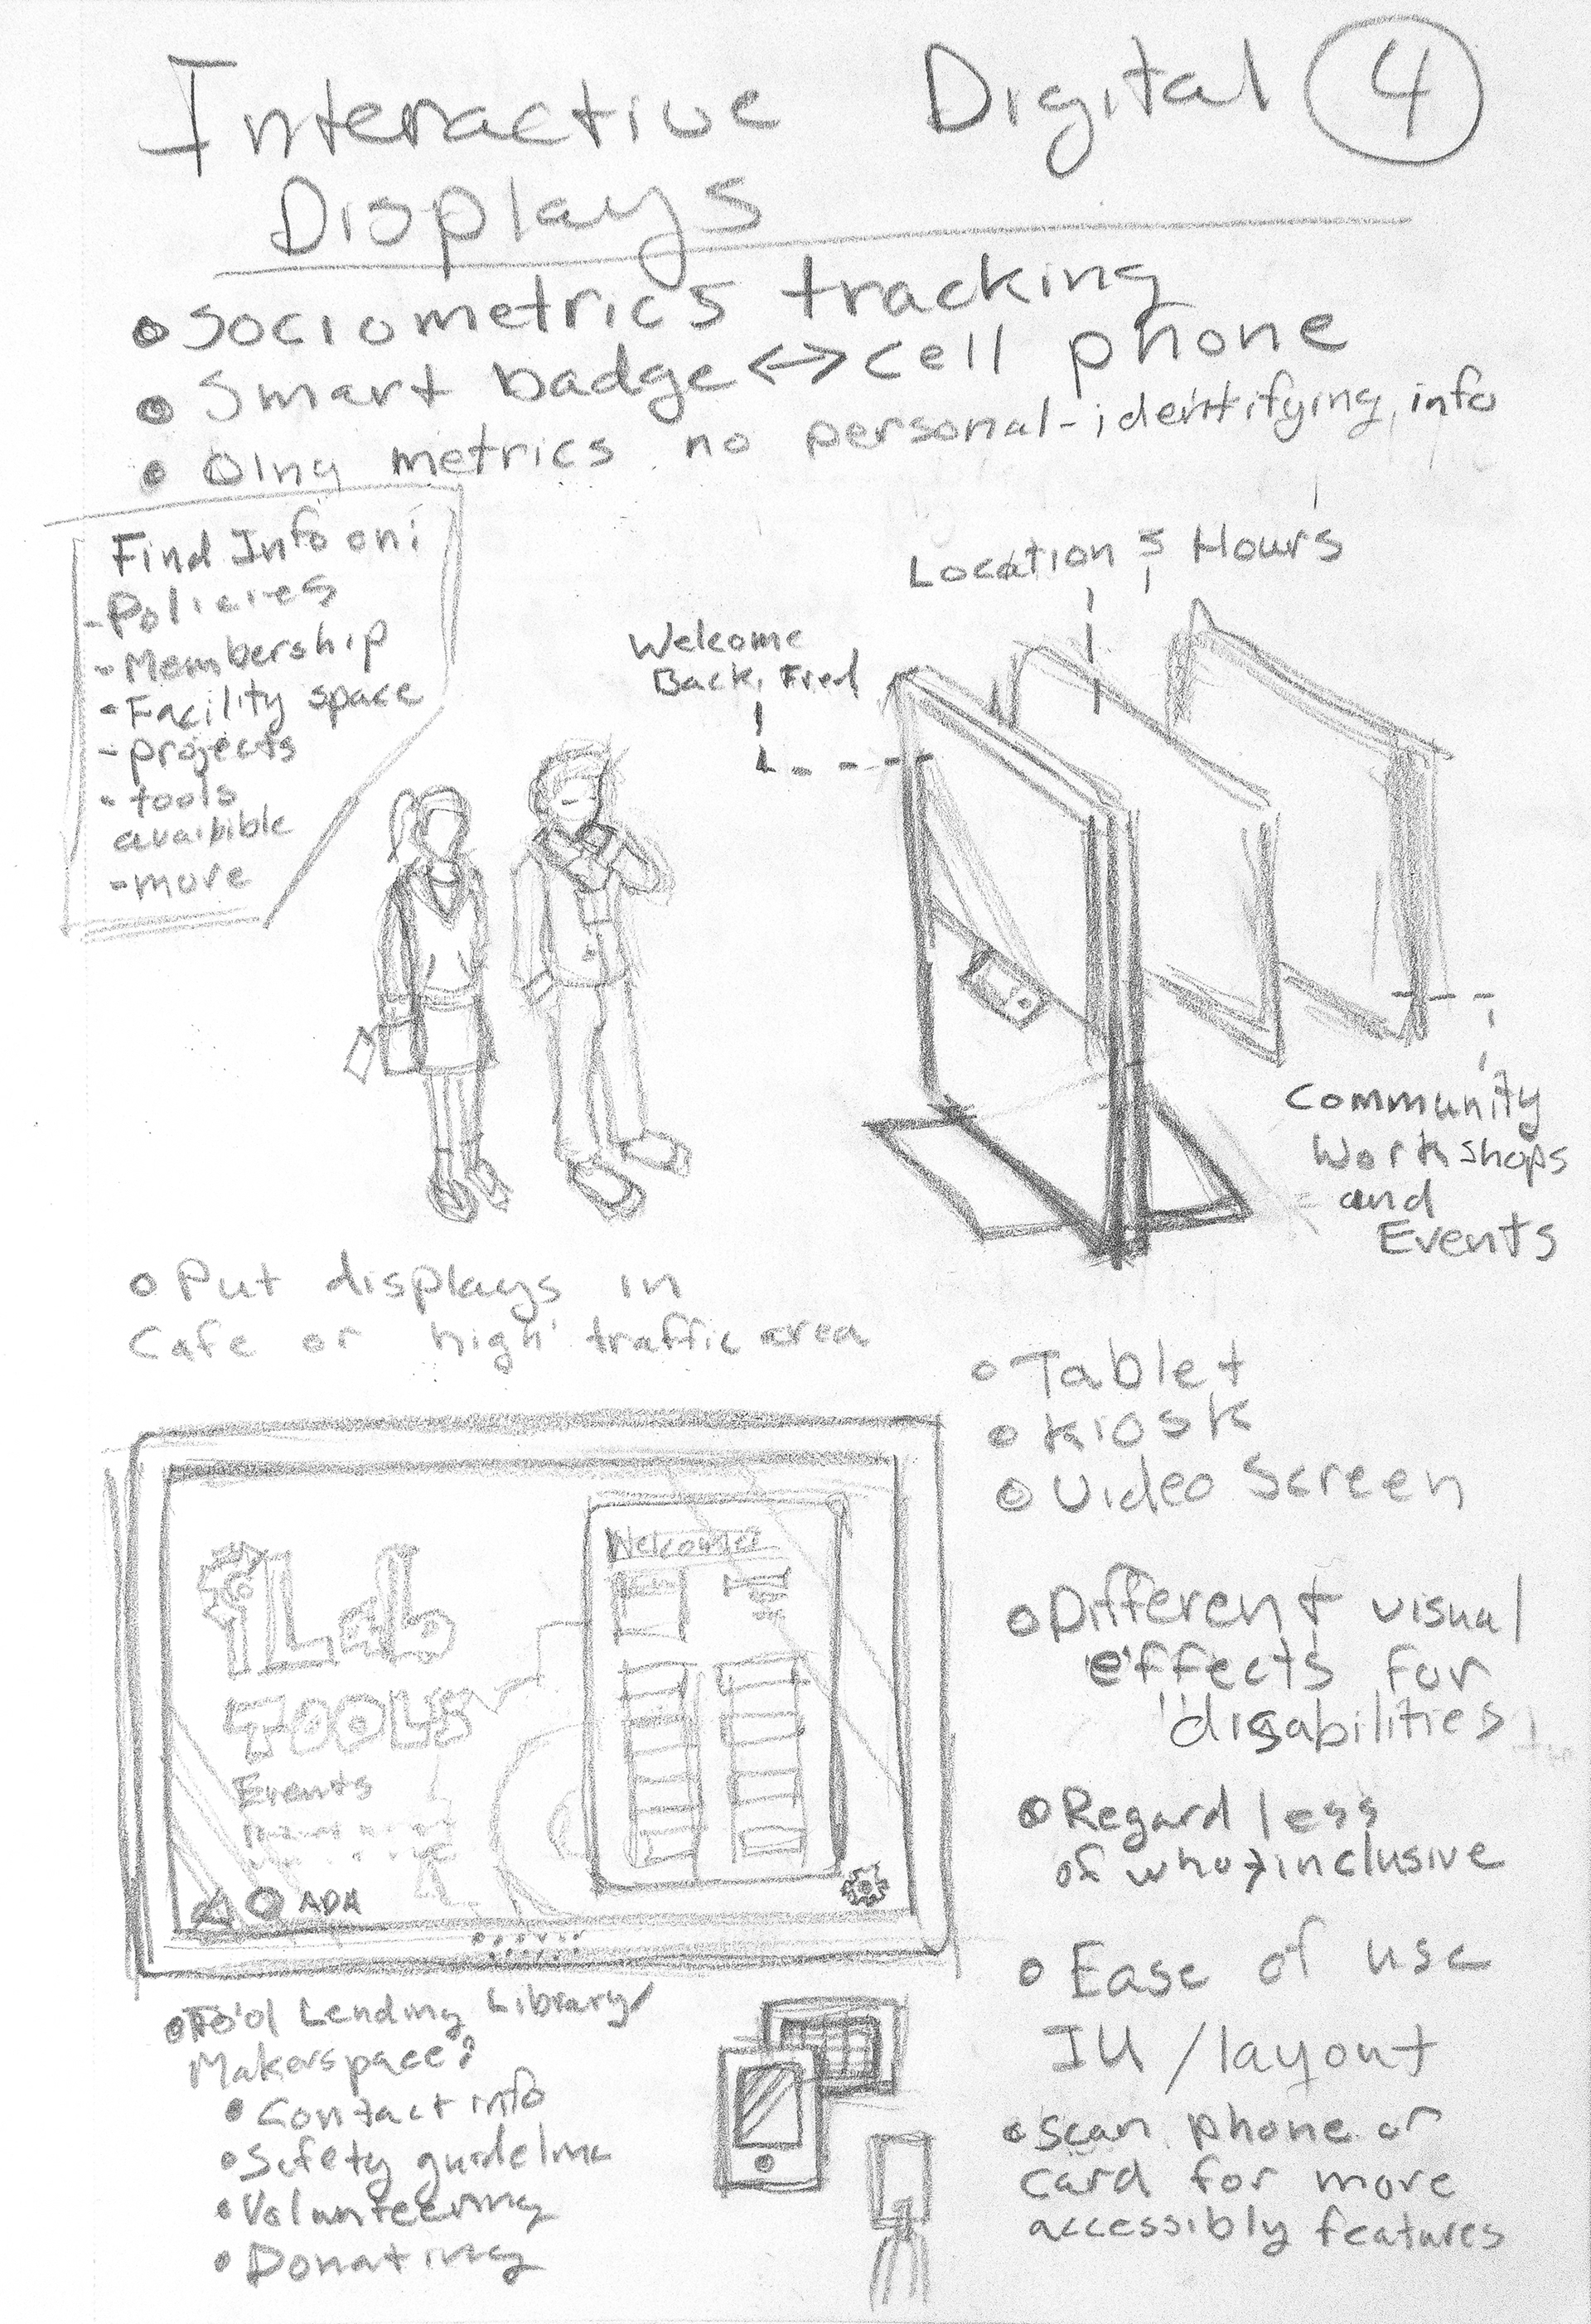 Interactive Digital 4
Displays
• Sociometrics tracking
• Smart badge <-> cell phone
• Olny metrics no personal-identifying info
Find Info on:
- Policies
- Membership
- Facility space
- projects
- tools
availbible
- more
Welcome
Back, Fred
Location & Hours
Community
Workshops
and
Events
• Put displays in
Cafe or high traffic area
• Tablet
• Kiosk
• Video Screen
• Different visual
effects for
disabilities
• Regardless
of who → inclusive
• Ease of use
IU / layout
• Scan phone or
card for more
accessibly features
iLab
TOOLS
Events
ADA
Welcome
• Tool Lending Library/
Makerspace:
• Contact info
• Safety guideline
• Volunteering
• Donating